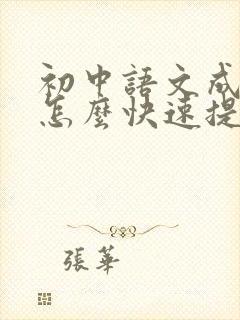 初中語文成
怎麼快速提
張華